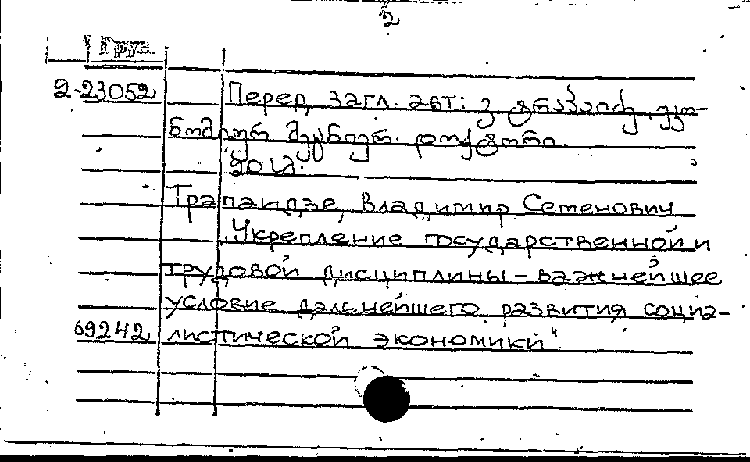 2
Груз.
2-23052 Перед загл. авт: ვ.
მეცნიერ.
20 სმ.
Трапаидзе, Владимир Семенович
"Укрепление государственной и
трудовой дисциплины – важнейшее
условие дальнейшего развития социа-
69242 листической экономики"